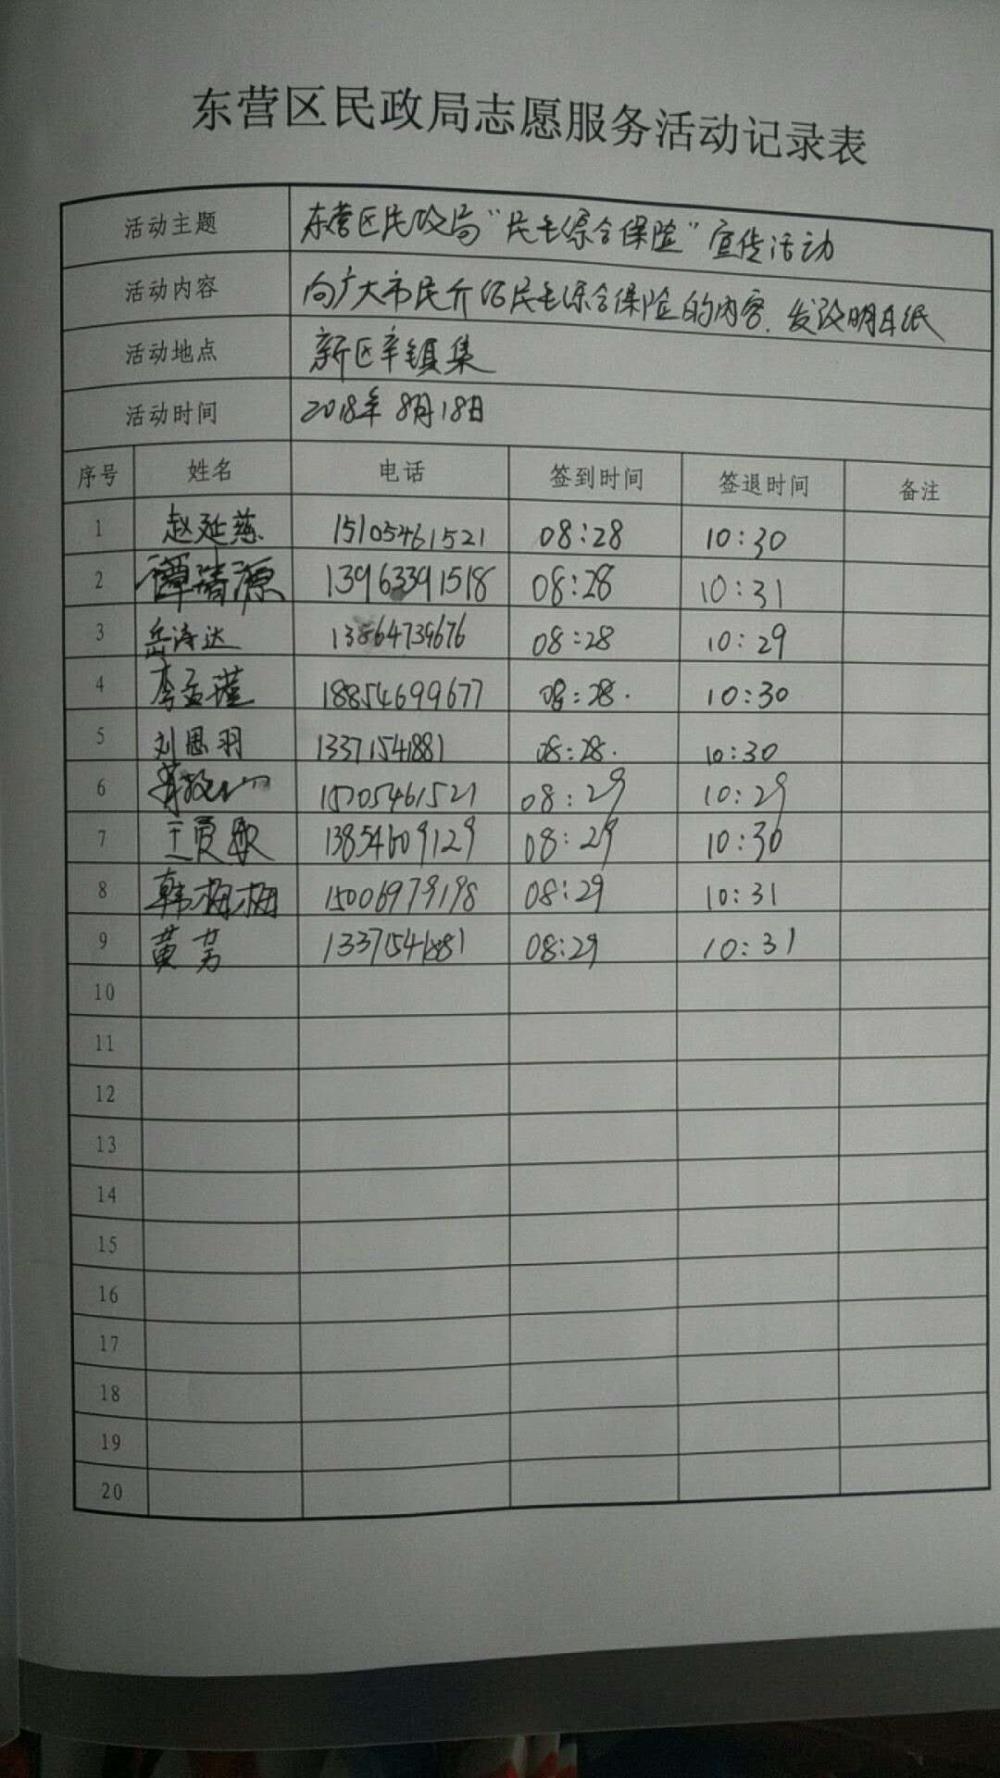 东营区民政局志愿服务活动记录表
活动主题 东营区民政局“民生综合保险”宣传活动
活动内容 向广大市民介绍民生综合保险的内容、发放明白纸
活动地点 新区辛镇集
活动时间 2018年8月18日
序号 姓名 电话 签到时间 签退时间 备注
1 赵延慈 15105461521 08:28 10:30
2 谭清源 13963391518 08:28 10:31
3 岳涛达 13864739676 08:28 10:29
4 李孟瑾 18854699677 08:28. 10:30
5 刘思羽 13371541881 08:28. 10:30
6 15205461521 08:29 10:29
7 王夏 13854609129 08:29 10:30
8 韩梅梅 15006979198 08:29 10:31
9 黄芳 13371541881 08:29 10:31
10
11
12
13
14
15
16
17
18
19
20